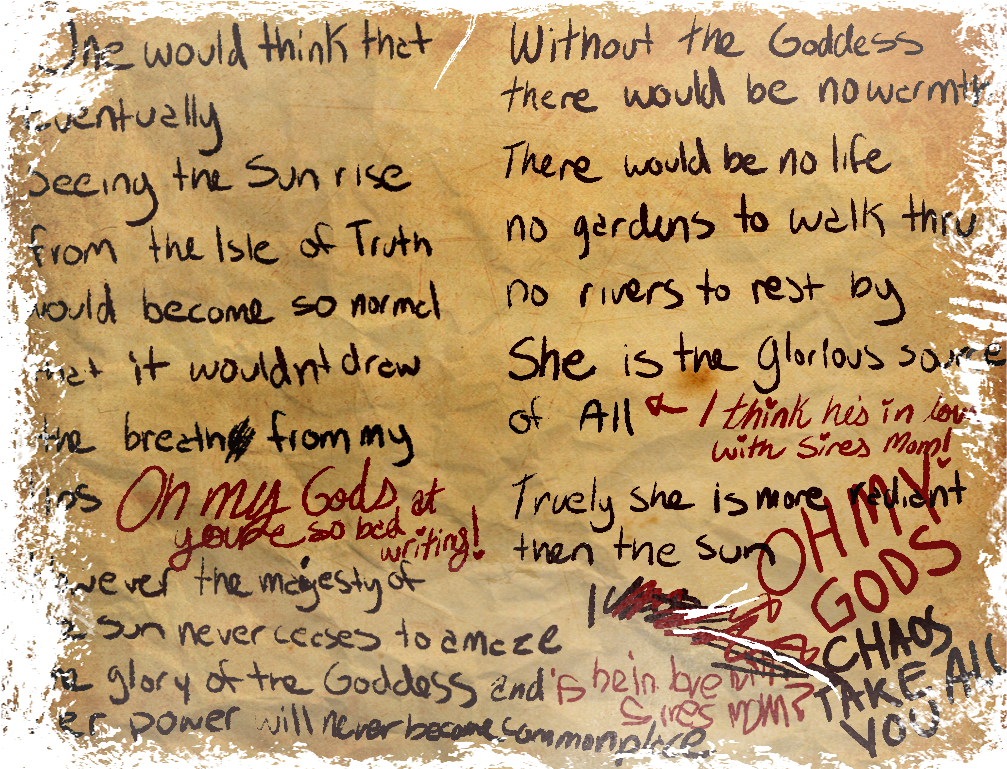 One would think that
eventually
seeing the Sun rise
from the Isle of Truth
would become so normal
that it wouldnt draw
the breath from my
lips
Oh my Gods
you're so bad at
writing!
however the majesty of
the sun never ceases to amaze
the glory of the Goddess and
her power will never become commonplace
Without the Goddess
there would be no warmth
There would be no life
no gardens to walk thru
no rivers to rest by
She is the glorious source
of All
I think hes in love
with Sires Mom!
Truely she is more radient
then the sun
OH MY
GODS
CHAOS
TAKE ALL
YOU
Sires MOM?